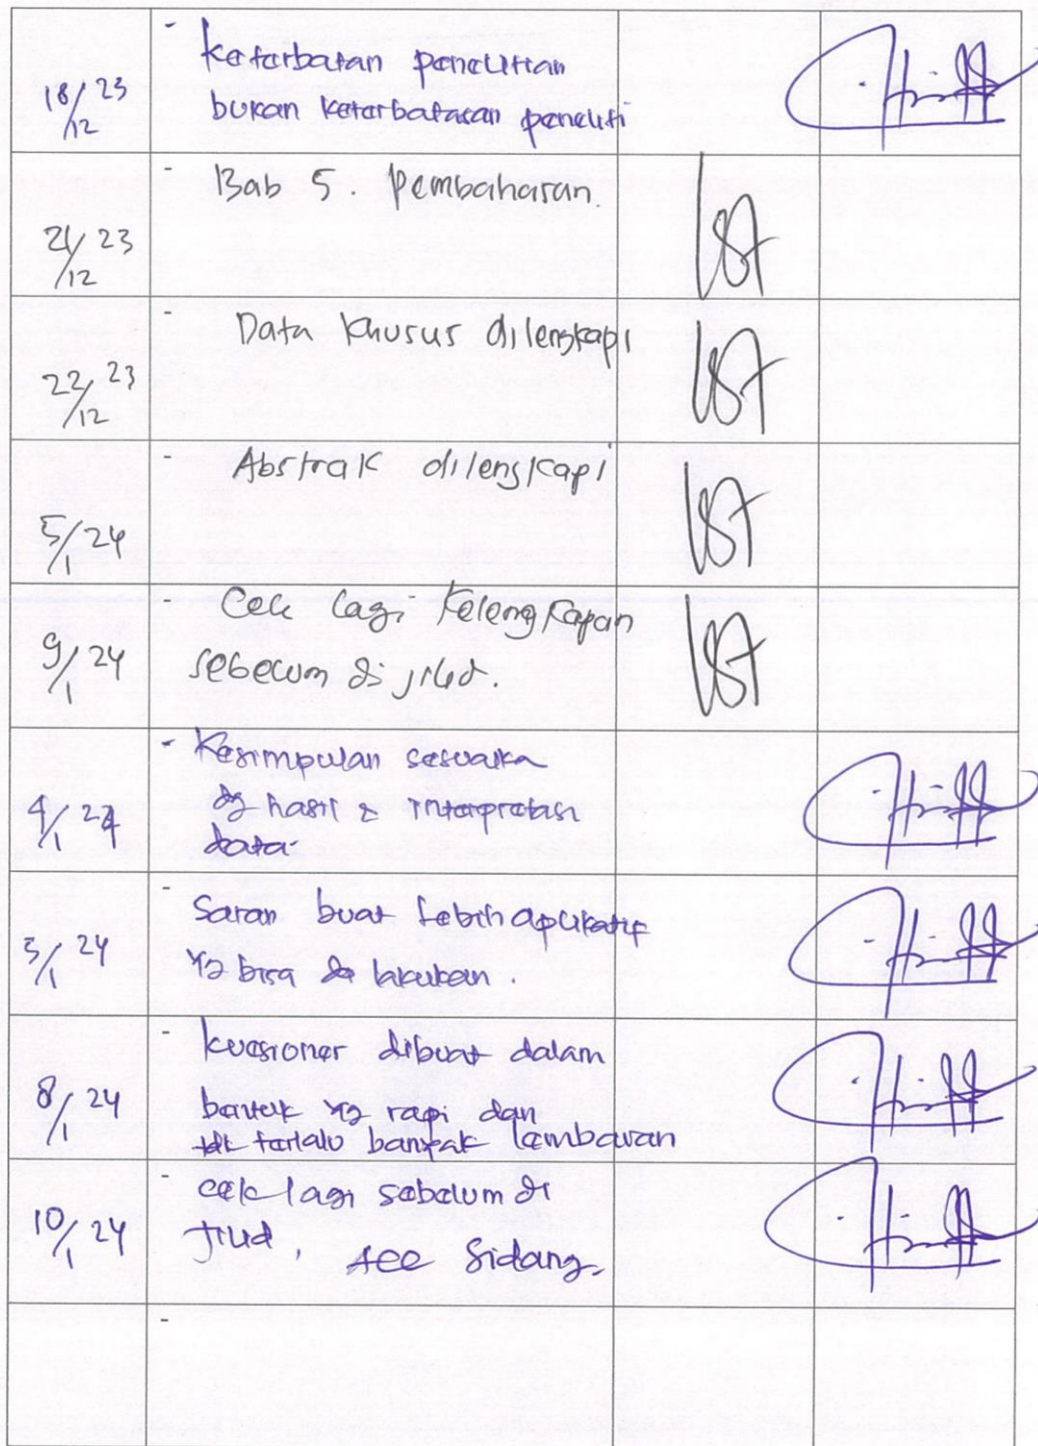 18/12 23
- keterbatan penelitian
bukan keterbatasan peneliti
21/12 23
- Bab 5. Pembahasan.
22/12 23
- Data khusus dilengkapi
5/1 24
- Abstrak dilengkapi
9/1 24
- Cek lagi Kelengkapan
sebelum di jilid.
4/1 24
- Kesimpulan sesuaika
dg hasil & interpretasi
data.
5/1 24
- Saran buat lebih aplikatif
yg bisa di lakukan.
8/1 24
- kuesioner dibuat dalam
bentuk yg rapi dan
tdk terlalu banyak lembaran
10/1 24
- cek lagi sebelum di
jilid, Acc Sidang.
-